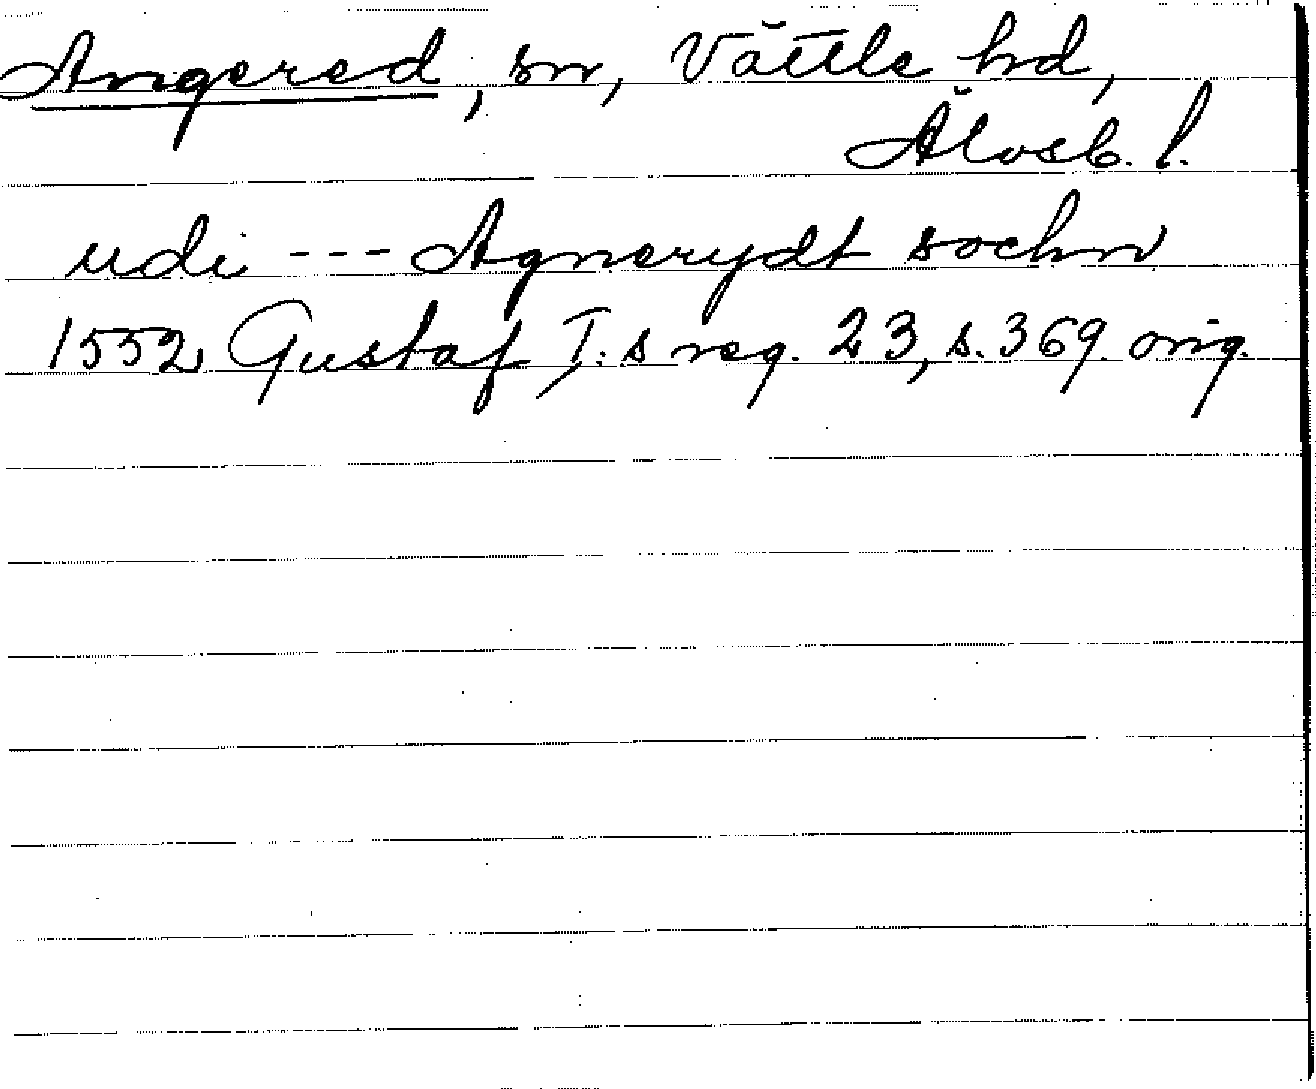 Angered, sn, Vättle hd,
Älvsb. l.
udi --- Agnerydt sochn
1552 Gustaf I:s reg. 23, s. 369. orig.